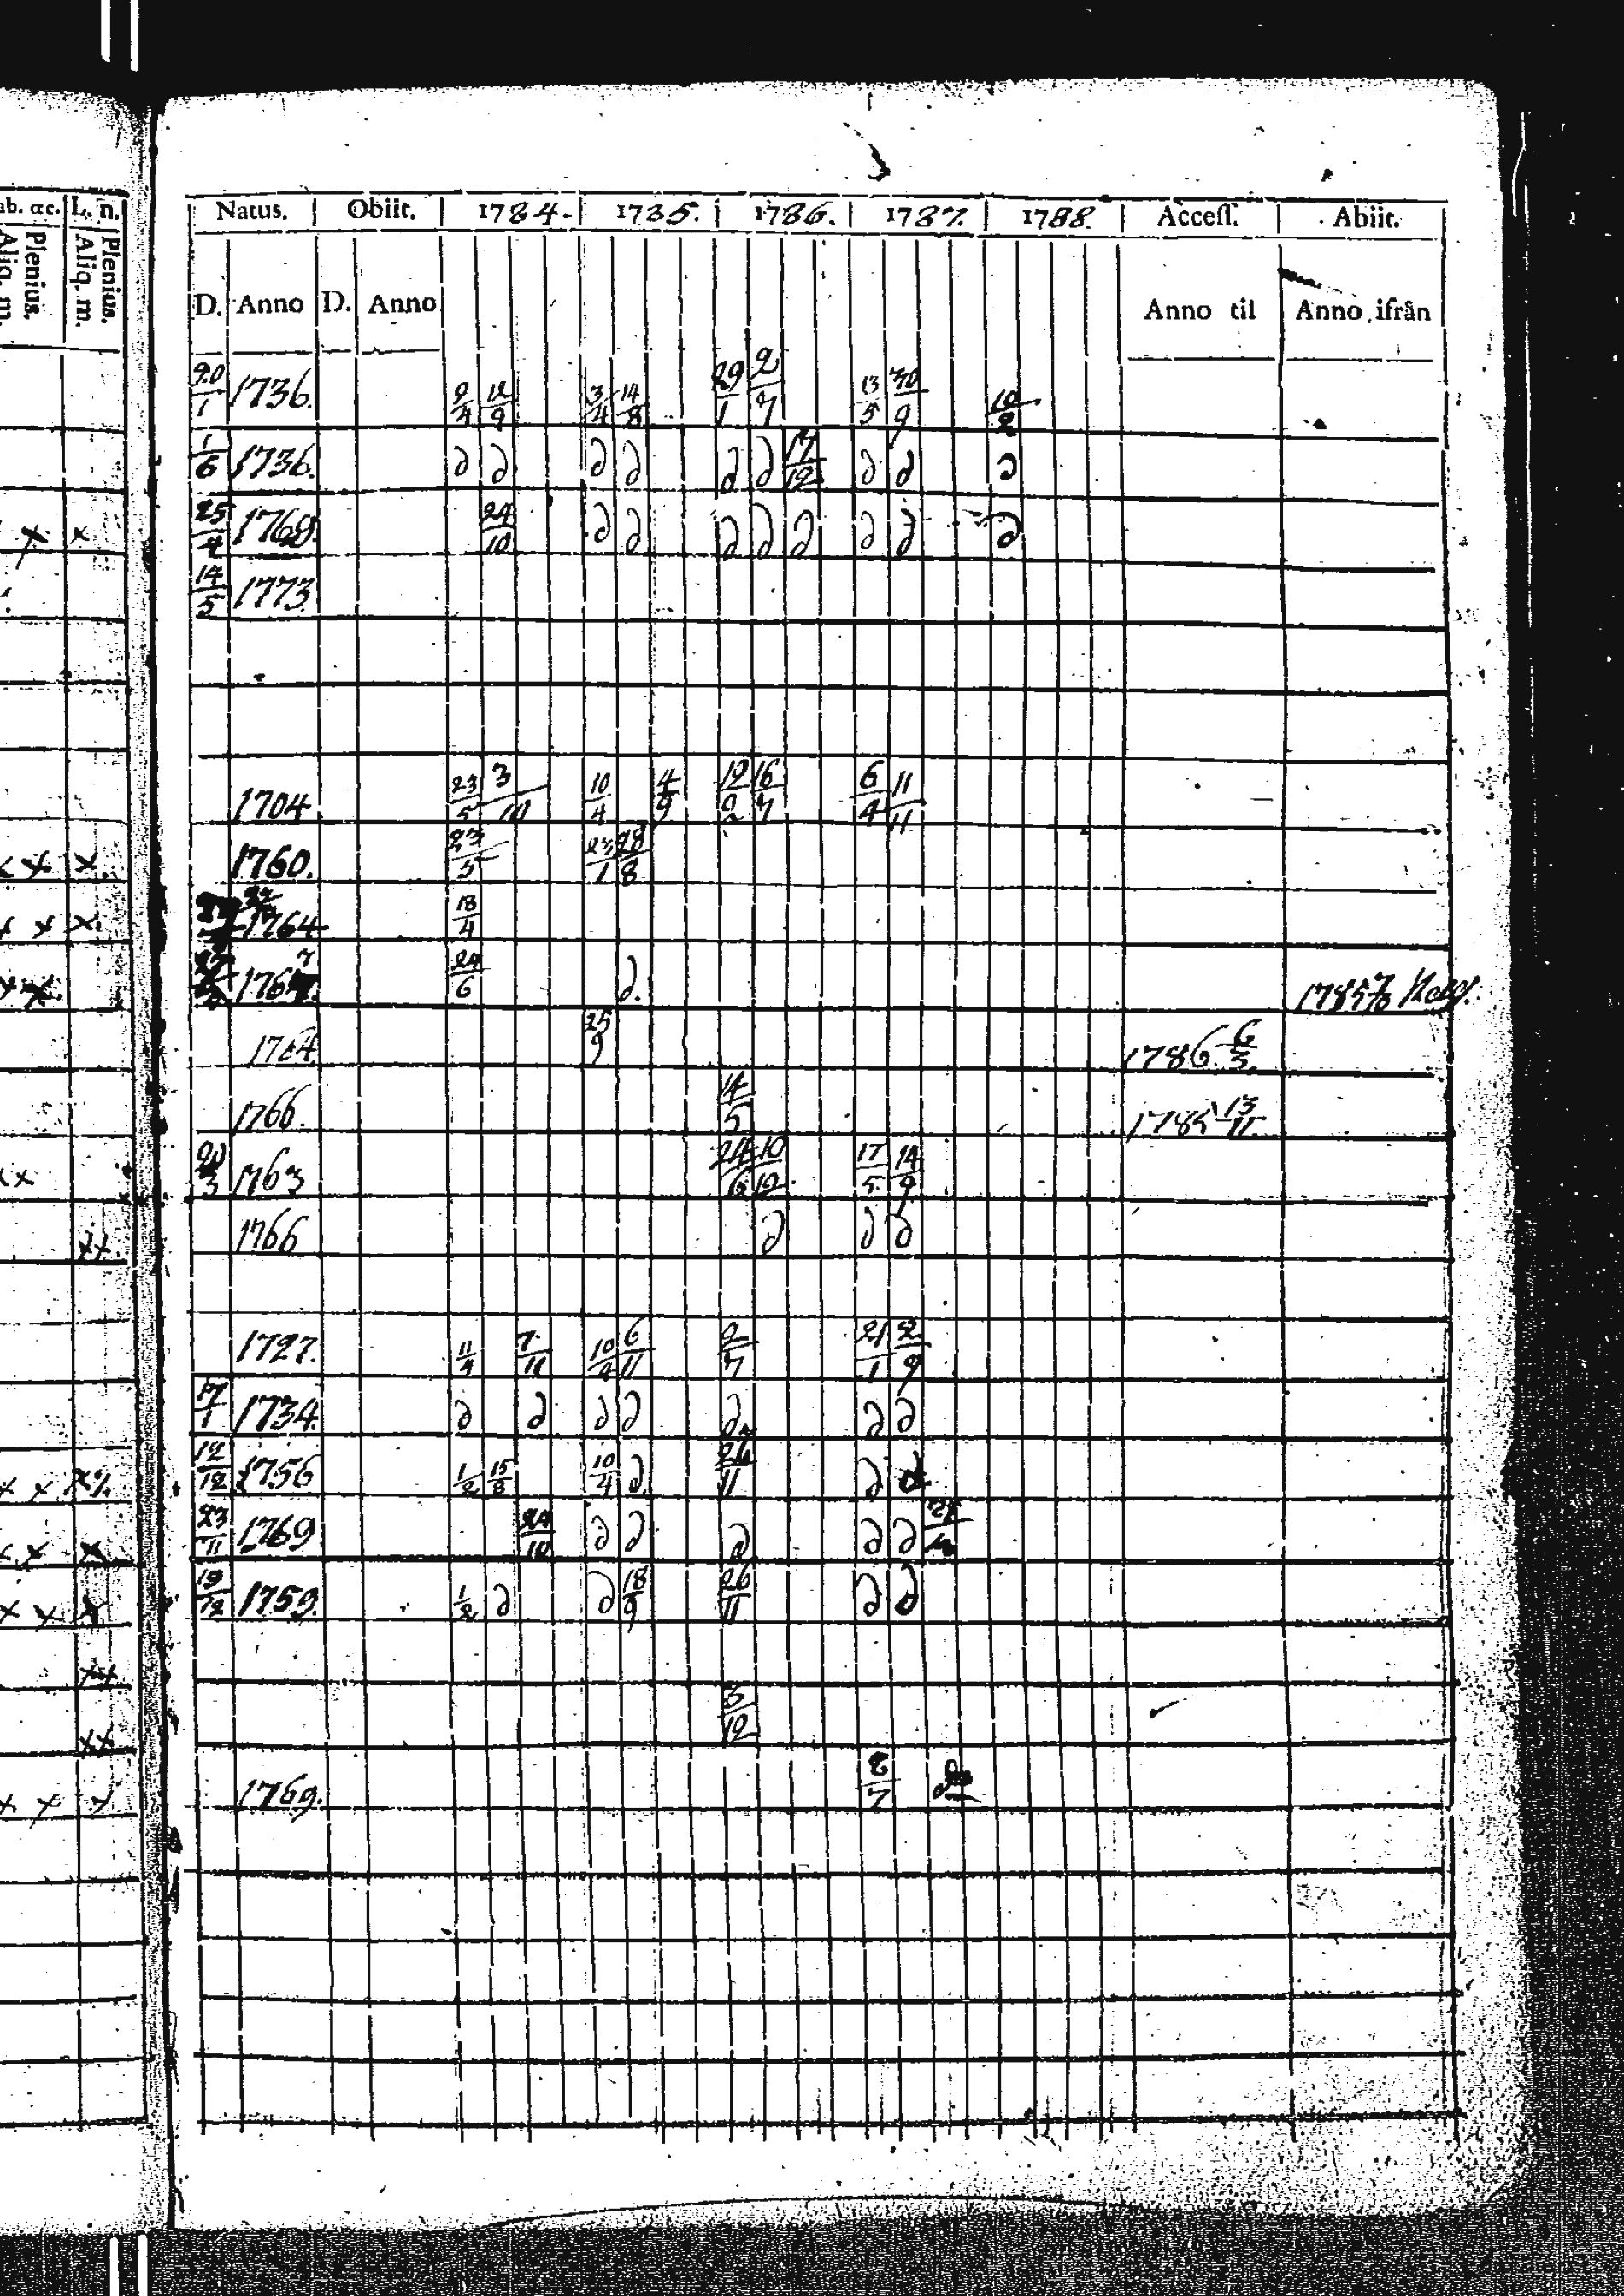 ab. æc. L. n.
Plenius. Aliq. m. Plenius. Aliq. m.
Natus. Obiit. 1784. 1785. 1786. 1787. 1788. Access. Abiit.
D. Anno D. Anno Anno til Anno ifrån
20/1 1736. 2/4 12/9 3/4 14/8 29/1 2/7 13/5 30/9 10/2
1/6 1736. ∂ ∂ ∂ ∂ ∂ ∂ 17/12 ∂ ∂ ∂
x x 25/4 1769. 24/10 ∂ ∂ ∂ ∂ ∂ ∂ ∂ ∂
14/5 1773.
1704 23/5 3/10 10/4 4/9 12/2 16/7 6/4 11/11
x x x. 1760. 23/5 23/1 28/8
x x x. 1764 18/4
x x 24/6 ∂. 1785
1764. 25/9 1786. 6/3.
1766. 14/5 1785 13/11.
x x 20/3 1763 24/6 10/12 17/5. 14/9
xx 1766 ∂ ∂ ∂
1727. 11/4 7/11 10/4 6/11 2/7 21/1 2/9
17/1 1734. ∂ ∂ ∂ ∂ ∂ ∂ ∂
x x 12/12 1756 1/2 15/8 10/4 ∂ 26/11 ∂ ∂
x x x 23/11 1769 24/10 ∂ ∂ ∂ ∂ ∂
x x x 19/12 1759. 1/2 ∂ ∂ 18/9 26/11 ∂ ∂
xx
xx 3/12
x x x 1769. 2/7